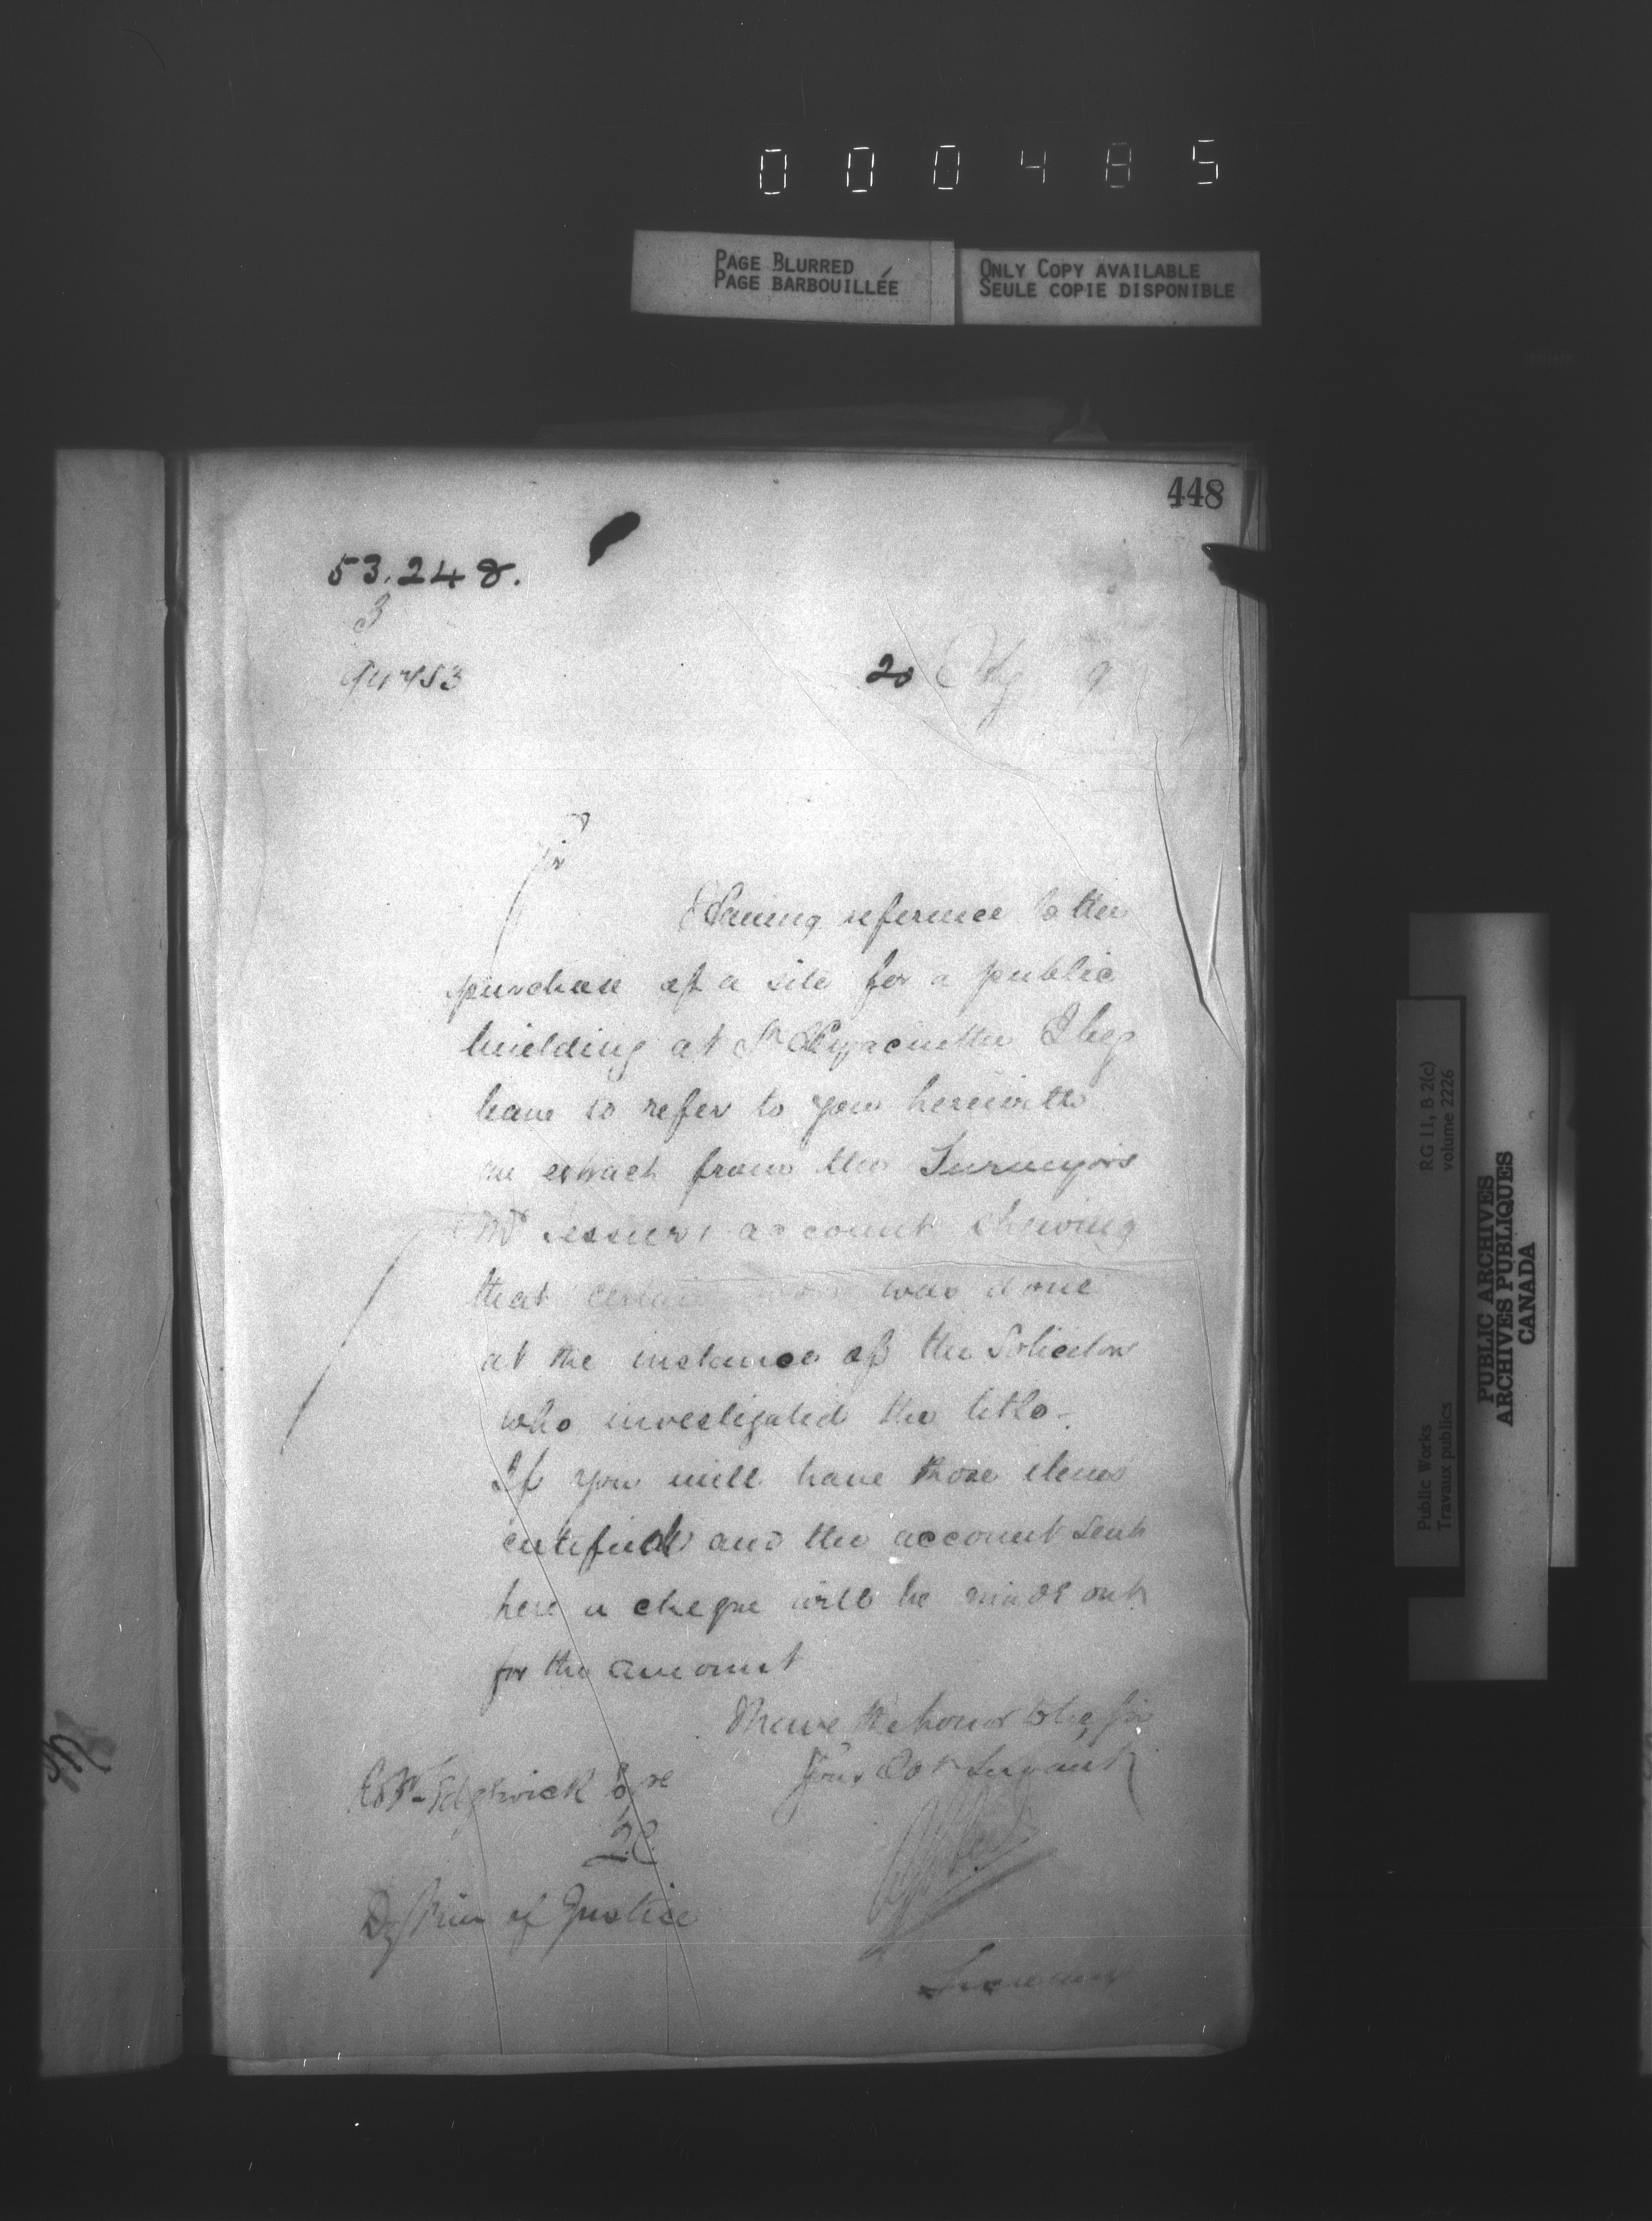 0 0 0 4 8 5
PAGE BLURRED
PAGE BARBOUILLÉE
ONLY COPY AVAILABLE
SEULE COPIE DISPONIBLE
448
53.248.
3
20
Sir
Having reference to the
purchase of a site for a public
building at St Hyacinthe I beg
leave to refer to you herewith
an extract from the Surveyors
Mr account shewing
that certain was done
at the instance of the Solicitor
who investigated the title -
If you will have those items
certified and the account sent
here a cheque will be made out
for the amount
I have the honor to be, Sir
Your Obt Servant
Sedgwick Esqre
Q.C.
Dy Min of Justice
Secretary
RG 11, B 2(c)
volume 2226
Public Works
Travaux publics
PUBLIC ARCHIVES
ARCHIVES PUBLIQUES
CANADA